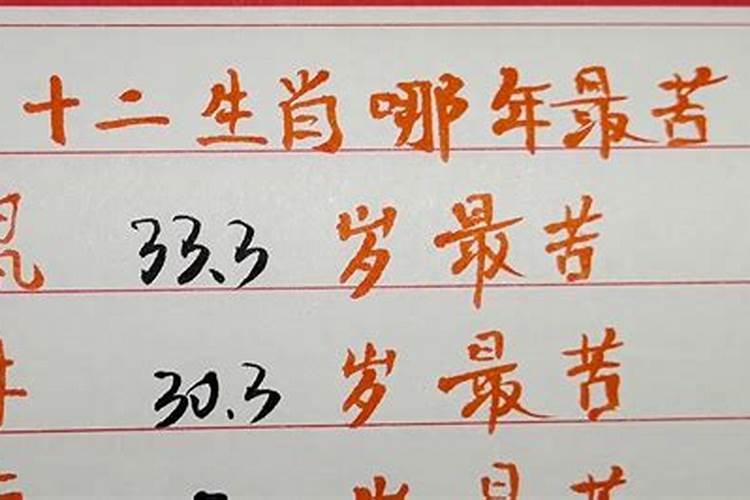 十二生肖哪年最苦
鼠 33.3 岁最苦
牛 30.3 岁最苦
岁最苦